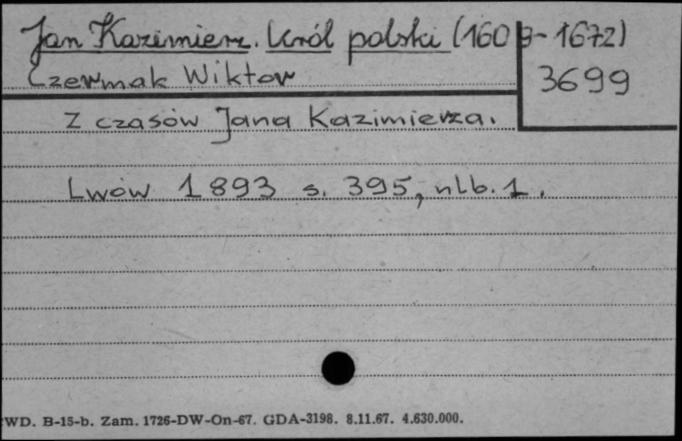 Jan Kazimierz. Król polski (1609-1672)
Czermak Wiktor
3699
Z czasów Jana Kazimierza.
Lwów 1893 s. 395, nlb. 1.
WD. B-15-b. Zam. 1726-DW-On-67. GDA-3198. 8.11.67. 4.630.000.